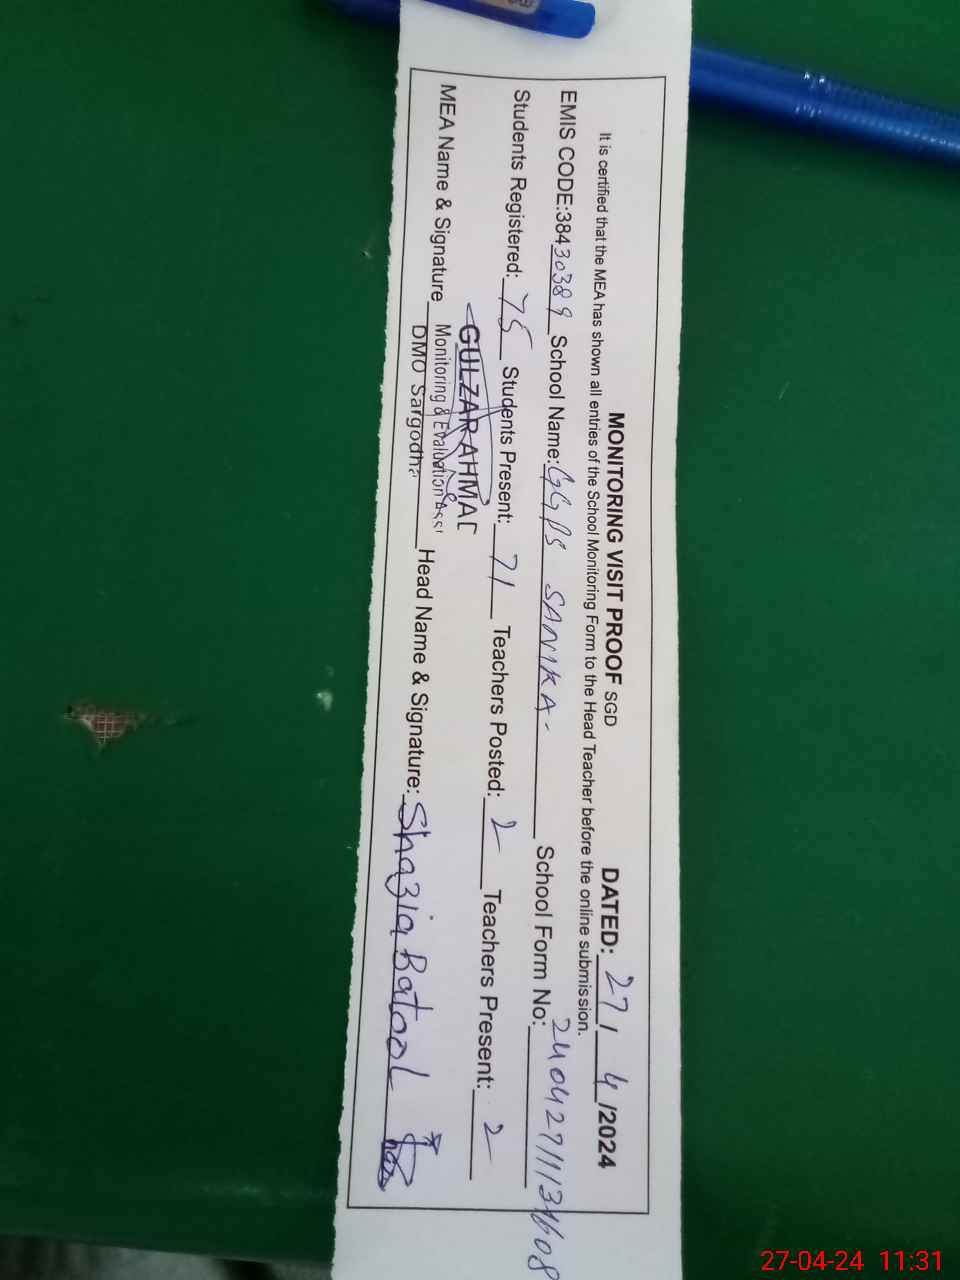 MONITORING VISIT PROOF SGD DATED: 27 / 4 /2024
It is certified that the MEA has shown all entries of the School Monitoring Form to the Head Teacher before the online submission.
EMIS CODE:38430389 School Name: GGPS SANIKA- School Form No:
Students Registered: 75 Students Present: 71 Teachers Posted: 2 Teachers Present: 2
GULZAR AHMAD
MEA Name & Signature Monitoring & Evaluation Assi Head Name & Signature: Shazia Batool
DMO Sargodha
27-04-24 11:31